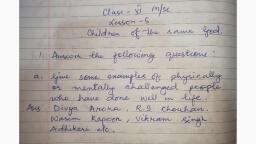 Class - XI M/Sc
Lesson - 6
Children of the same God.
1. Answer the following questions:
a. Give some examples of physically
or mentally challenged people
who have done well in life.
Ans Divya Arora, R.S Chouhan.
Wasim Kapoor, Vikram Singh
Adhikari etc.